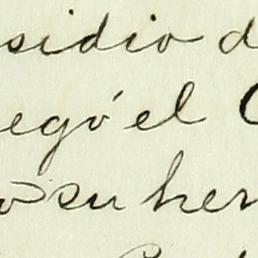 sidio d
egó el C
o su her